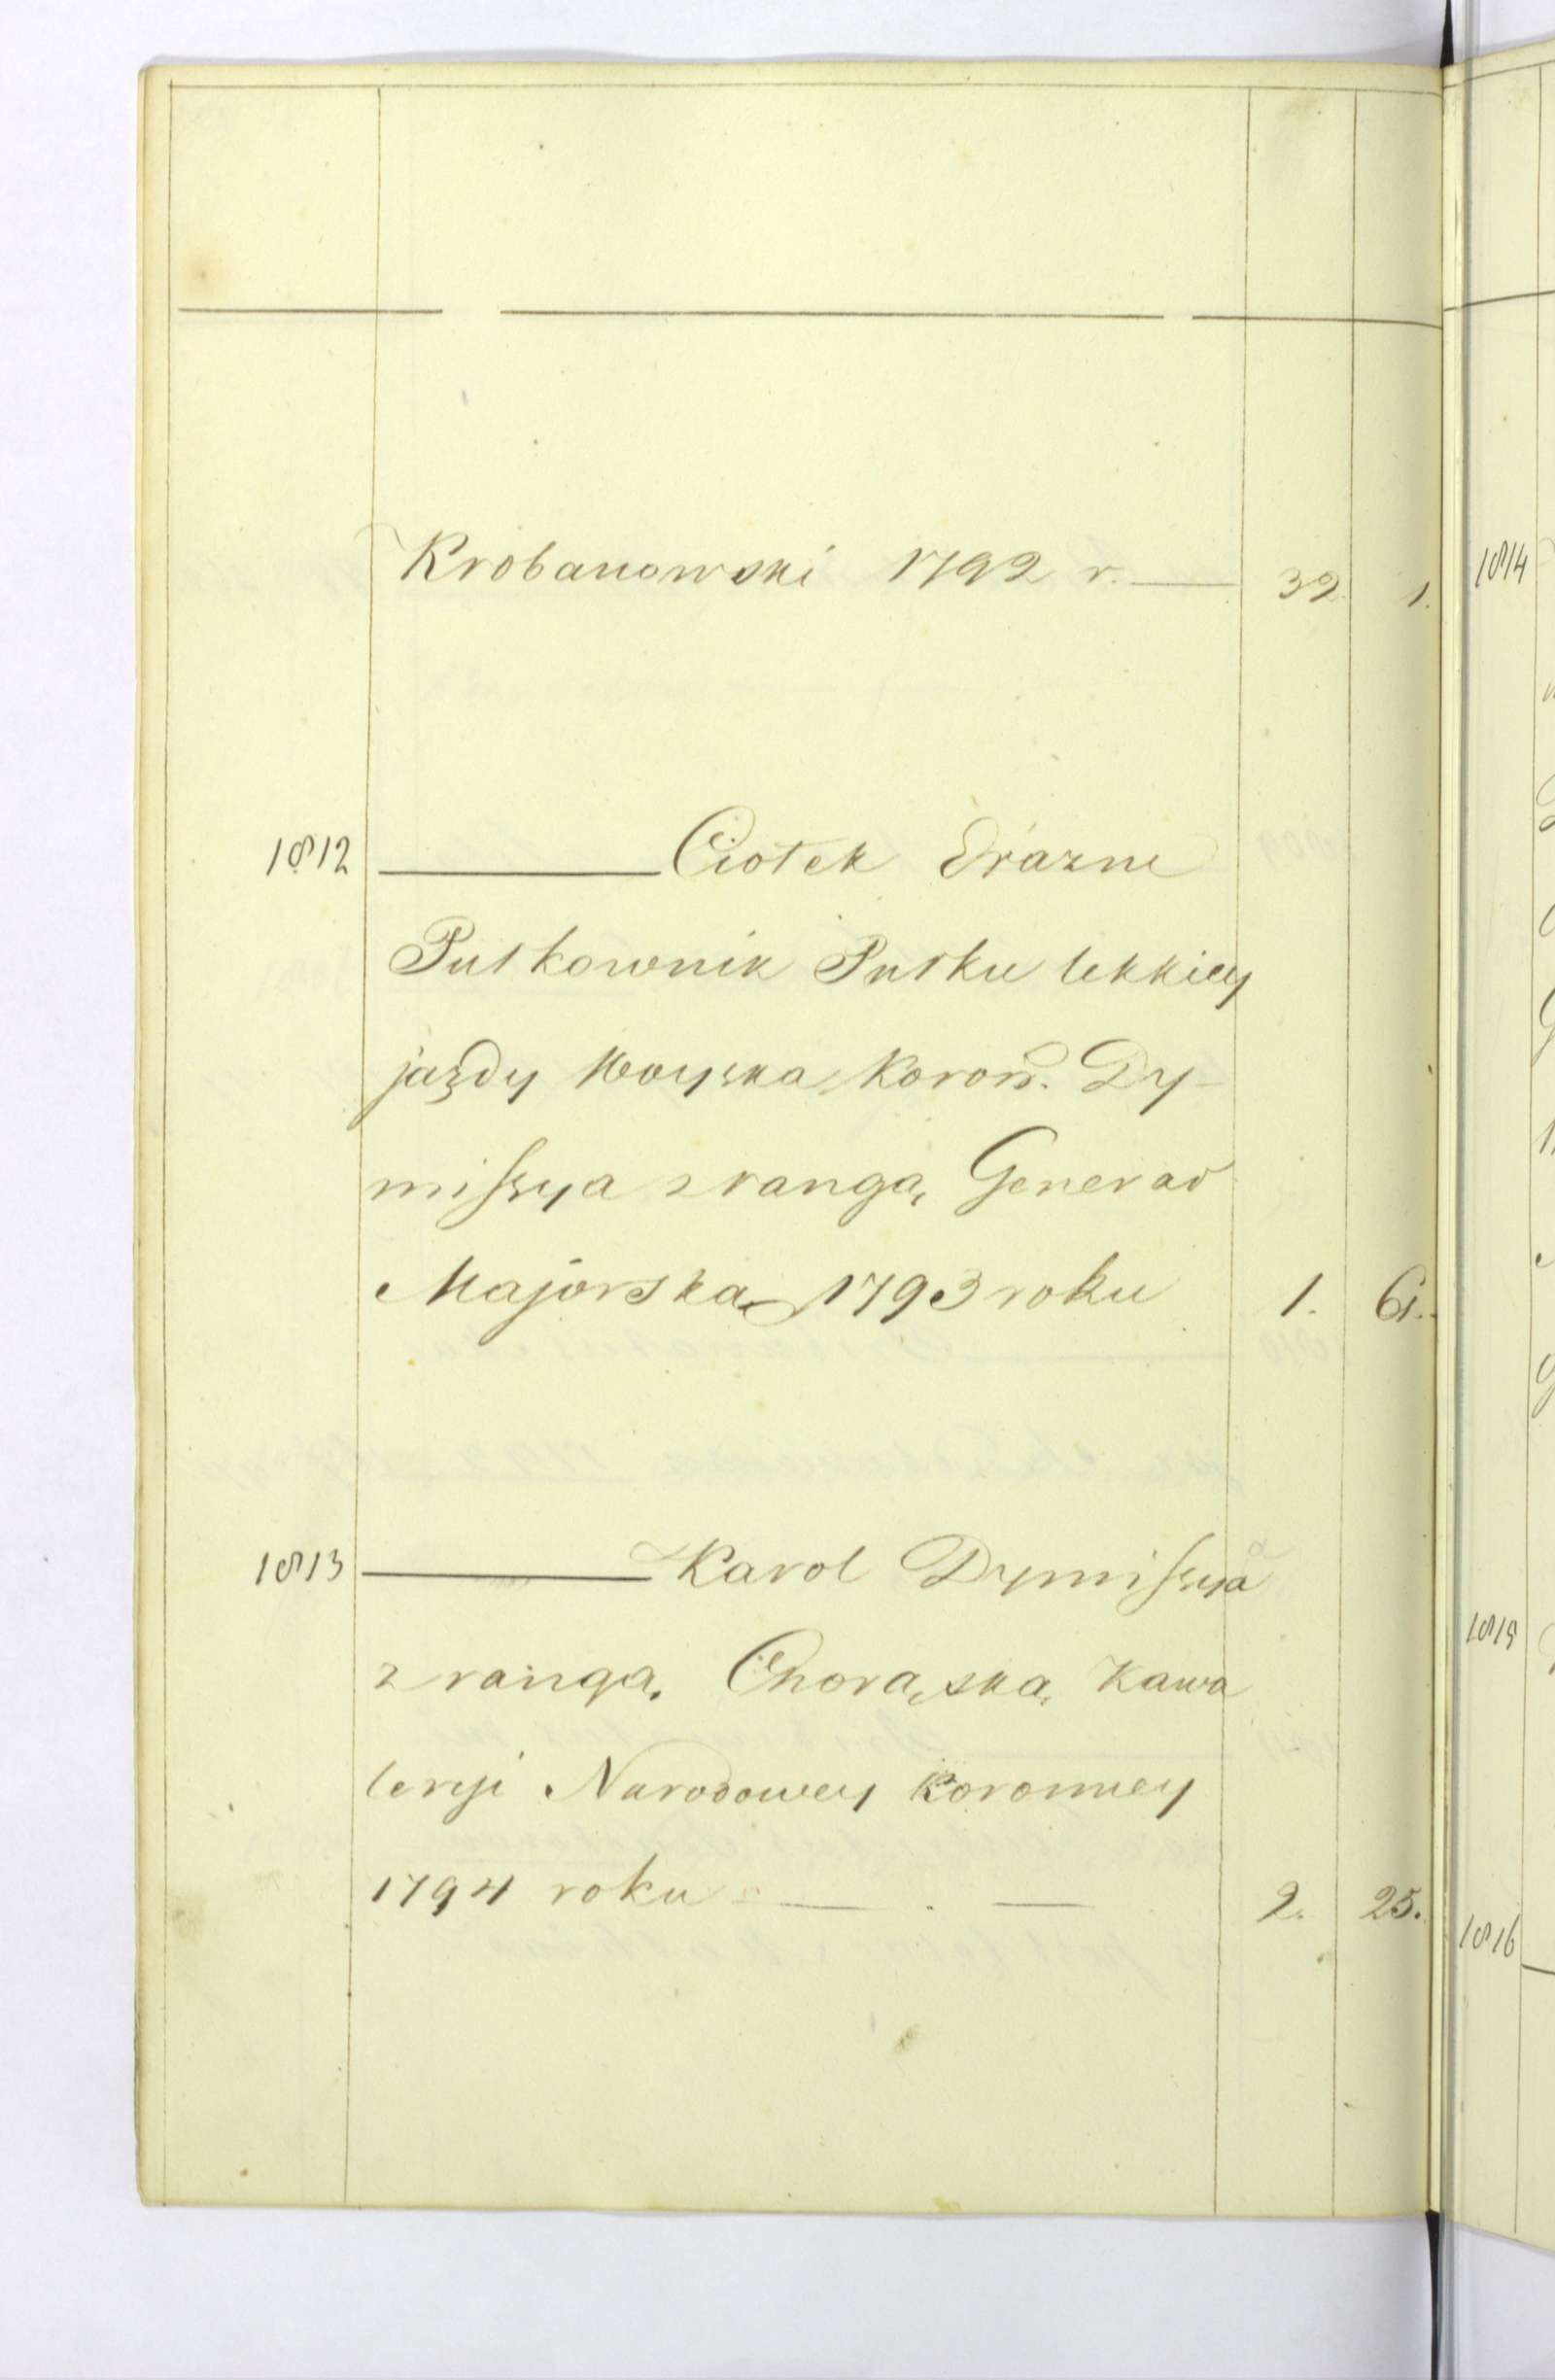 Krobanowski 1792 r. — 39. 1.
1812 — Ciołek Erazm
Pułkownik Pułku lekkiey
jazdy Woyska Koron. Dy-
missya z rangą Generał
Majorską 1793 roku 1. 61.
1813 — Karol Dymissya
z rangą Chorąską Kawa
leryi Narodowey Koronney
1794 roku — . — 2. 25.
1814
1815
1816